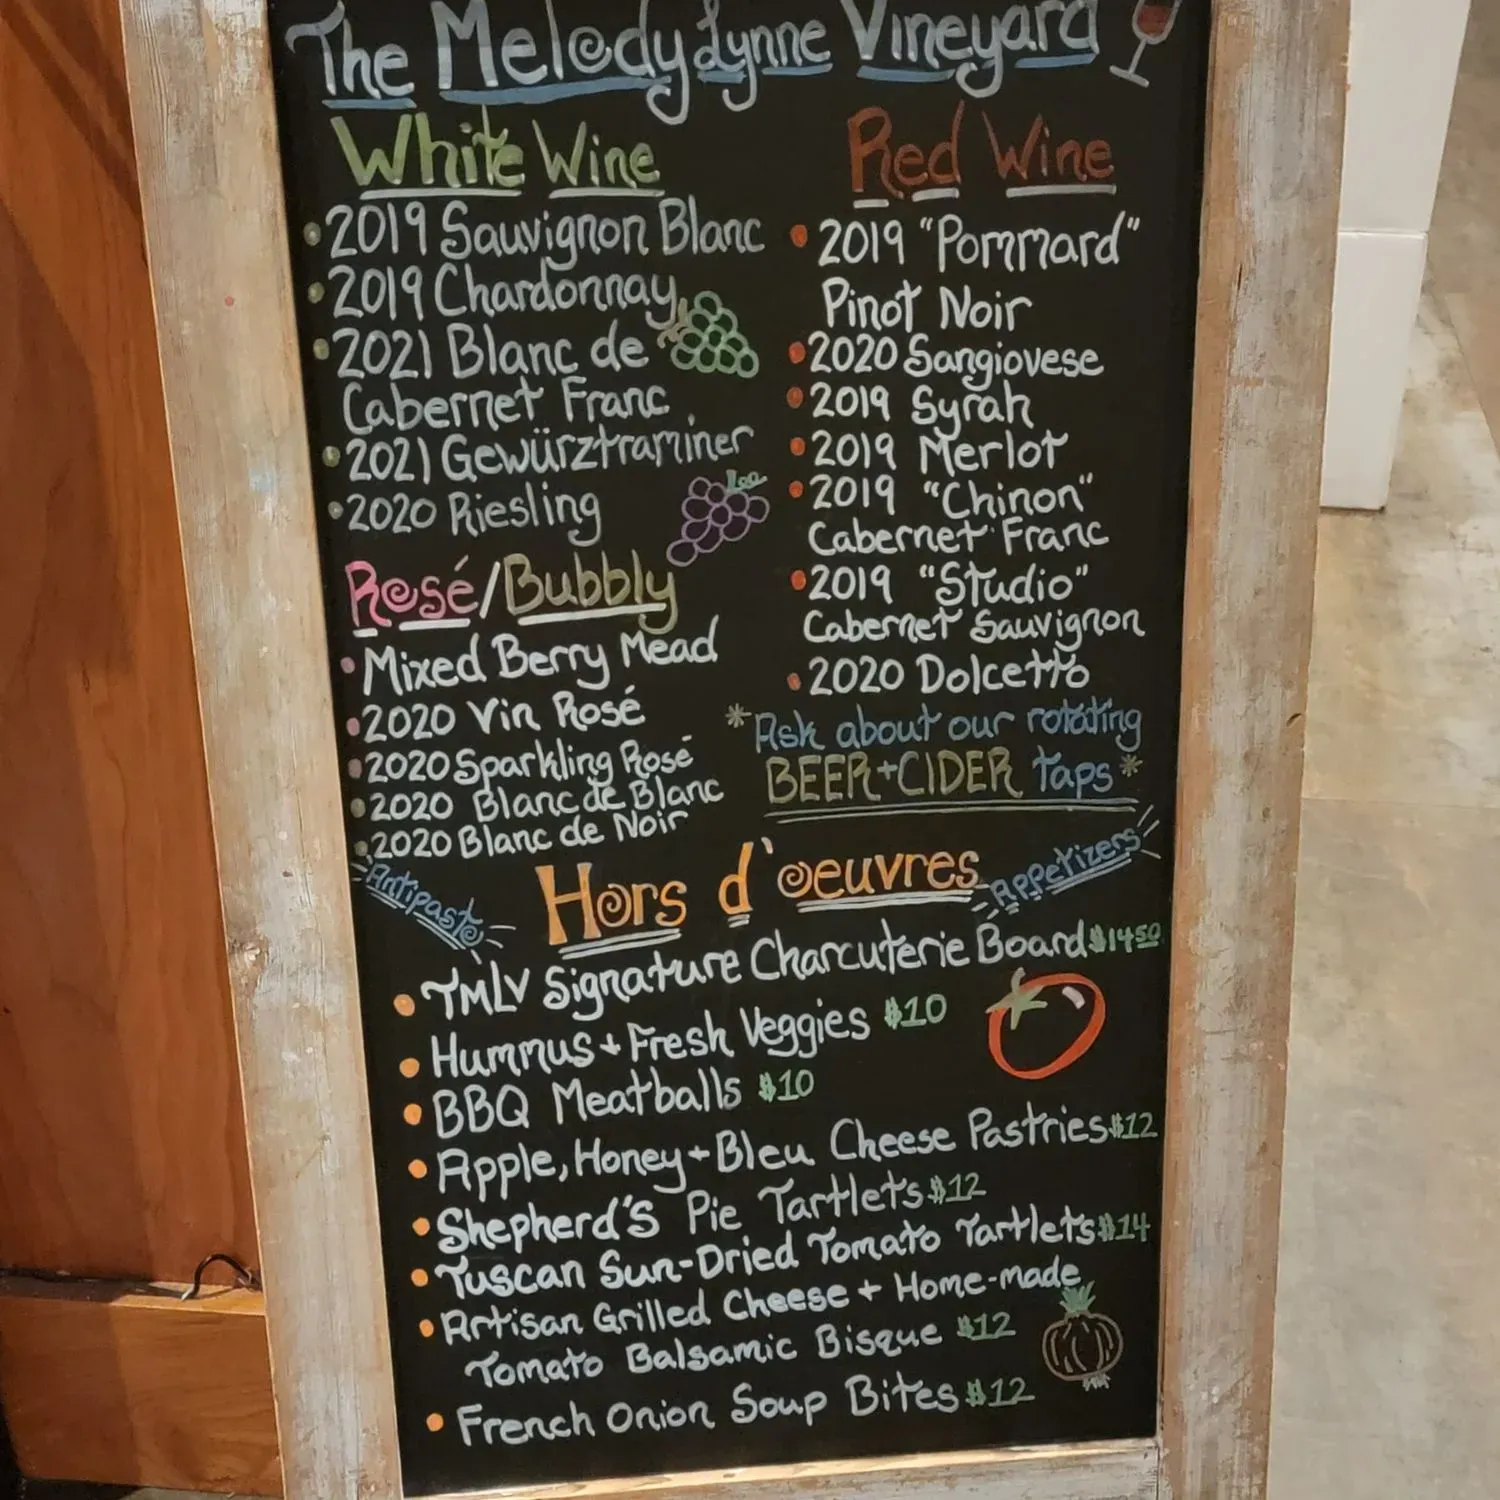 The Melody Lynne Vineyard
White Wine
• 2019 Sauvignon Blanc
• 2019 Chardonnay
• 2021 Blanc de
Cabernet Franc
• 2021 Gewürztraminer
• 2020 Riesling
Rosé/Bubbly
• Mixed Berry Mead
• 2020 Vin Rosé
• 2020 Sparkling Rosé
• 2020 Blanc de Blanc
• 2020 Blanc de Noir
Red Wine
• 2019 "Pommard"
Pinot Noir
• 2020 Sangiovese
• 2019 Syrah
• 2019 Merlot
• 2019 "Chinon"
Cabernet Franc
• 2019 "Studio"
Cabernet Sauvignon
• 2020 Dolcetto
*Ask about our rotating
BEER+CIDER taps*
Antipasto
Hors d'oeuvres
Appetizers
• TMLV Signature Charcuterie Board $1450
• Hummus + Fresh Veggies $10
• BBQ Meatballs $10
• Apple, Honey + Bleu Cheese Pastries $12
• Shepherd's Pie Tartlets $12
• Tuscan Sun-Dried Tomato Tartlets $14
• Artisan Grilled Cheese + Home-made
Tomato Balsamic Bisque $12
• French Onion Soup Bites $12